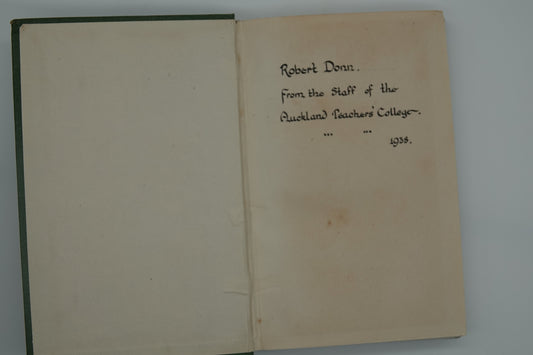 Robert Donn.
From the Staff of the
Auckland Teachers' College.
... ...
1938.